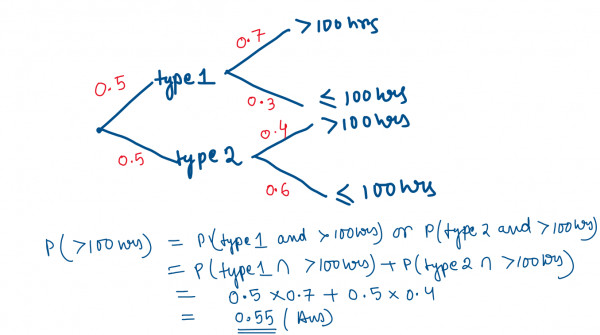 0.7 >100hrs
0.5 type1
0.3 ≤ 100hrs
0.4 >100hrs
0.5 type 2
0.6 ≤ 100hrs
P(>100hrs) = P(type1 and >100hrs) or P(type2 and >100hrs)
= P(type1 ∩ >100hrs) + P(type2 ∩ >100hrs)
= 0.5 × 0.7 + 0.5 × 0.4
= 0.55 (Ans)